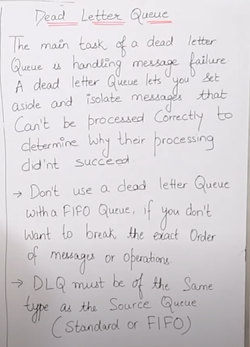 Dead Letter Queue
The main task of a dead letter
Queue is handling message failure
A dead letter Queue lets you set
aside and isolate messages that
Can't be processed Correctly to
determine Why their processing
did'nt succeed
→ Don't use a dead letter Queue
with a FIFO Queue, if you don't
Want to break the exact Order
of messages or operations
→ DLQ must be of the Same
type as the Source Queue
(Standard or FIFO)